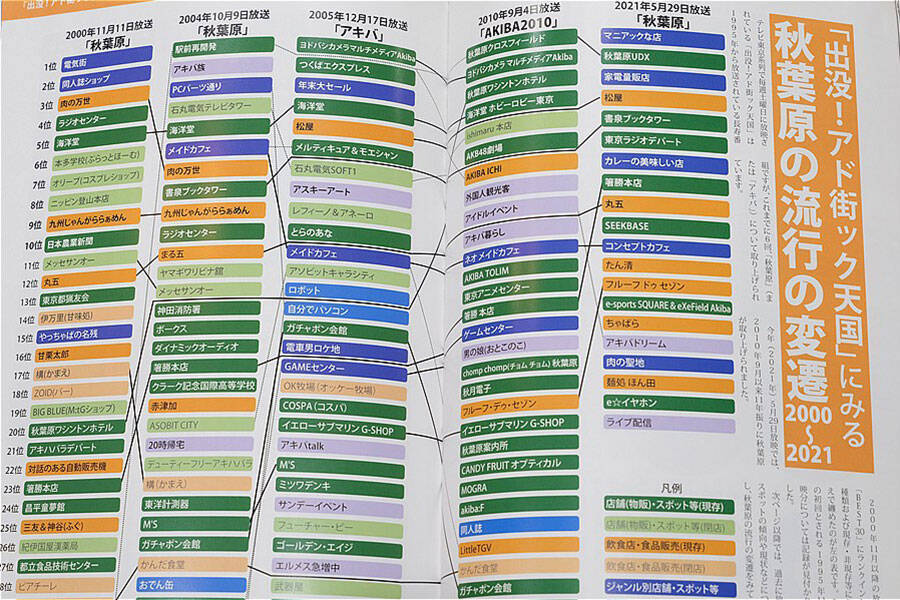 「出没！アド街ック天国」にみる
秋葉原の流行の変遷
2000
〜
2021
2000年11月11日放送
「秋葉原」
1位 電気街
2位 同人誌ショップ
3位 肉の万世
4位 ラジオセンター
5位 海洋堂
6位 本多学校(ふらっとほーむ)
7位 オリーブ(コスプレショップ)
8位 ニッピン登山本店
9位 九州じゃんがららぁめん
10位 日本農業新聞
11位 メッセサンオー
12位 丸五
13位 東京都猟友会
14位 伊万里(甘味処)
15位 やっちゃばの名残
16位 甘栗太郎
17位 構(かまえ)
18位 ZOID(バー)
19位 BIG BLUE(M:tGショップ)
20位 秋葉原ワシントンホテル
21位 アキハバラデパート
22位 対話のある自動販売機
23位 箸勝本店
24位 昌平童夢館
25位 三友＆神谷(ふぐ)
26位 紀伊国屋漢薬局
27位 都立食品技術センター
ピアチーレ
2004年10月9日放送
「秋葉原」
駅前再開発
アキバ族
PCパーツ通り
石丸電気テレビタワー
海洋堂
メイドカフェ
肉の万世
書泉ブックタワー
九州じゃんがららぁめん
ラジオセンター
まる五
ヤマギワリビナ館
メッセサンオー
神田消防署
ボークス
ダイナミックオーディオ
箸勝本店
クラーク記念国際高等学校
赤津加
ASOBIT CITY
20時帰宅
デューティーフリーアキハバラ
構(かまえ)
東洋計測器
M'S
ガチャポン会館
かんだ食堂
おでん缶
2005年12月17日放送
「アキバ」
ヨドバシカメラマルチメディアAkiba
つくばエクスプレス
年末大セール
海洋堂
松屋
メルティキュア＆モエシャン
石丸電気SOFT1
アスキーアート
レフィーノ＆アネーロ
とらのあな
メイドカフェ
アソビットキャラシティ
ロボット
自分でパソコン
ガチャポン会館
電車男ロケ地
GAMEセンター
OK牧場(オッケー牧場)
COSPA(コスパ)
イエローサブマリン G-SHOP
アキバtalk
M'S
ミツワデンキ
サンデーイベント
フューチャー・ビー
ゴールデン・エイジ
エルメス急増中
武器屋
2010年9月4日放送
「AKIBA2010」
秋葉原クロスフィールド
ヨドバシカメラマルチメディアAkiba
秋葉原ワシントンホテル
海洋堂 ホビーロビー東京
ishimaru 本店
AKB48劇場
AKIBA ICHI
外国人観光客
アイドルイベント
アキバ暮らし
ネオ メイドカフェ
AKIBA TOLIM
東京アニメセンター
箸勝 本店
ゲームセンター
男の娘(おとこのこ)
chomp chomp(チョム チョム) 秋葉原
秋月電子
フルーフ・デゥ・セゾン
イエローサブマリン G-SHOP
秋葉原案内所
CANDY FRUIT オプティカル
MOGRA
akiba:F
同人誌
LittleTGV
かんだ食堂
ガチャポン会館
2021年5月29日放送
「秋葉原」
マニアックな店
秋葉原UDX
家電量販店
松屋
書泉ブックタワー
東京ラジオデパート
カレーの美味しい店
箸勝本店
丸五
SEEKBASE
コンセプトカフェ
たん清
フルーフ ドゥ セゾン
e-sports SQUARE & eXeField Akiba
ちゃばら
アキバドリーム
肉の聖地
麺処 ほん田
e☆イヤホン
ライブ配信
凡例
店舗(物販)・スポット等(現存)
店舗(物販)・スポット等(閉店)
飲食店・食品販売(現存)
飲食店・食品販売(閉店)
ジャンル別店舗・スポット等
テレビ東京系列で毎週土曜日に放映さ
れている「出没！アド街ック天国」は
1995年から放送されている長寿番
組ですが、これまでに6回「秋葉原」（ま
たは「アキバ」）について取り上げられ
ています。
今年（2021年）5月29日放映では、
2010年9月以来11年振りに秋葉原
が取り上げられました。